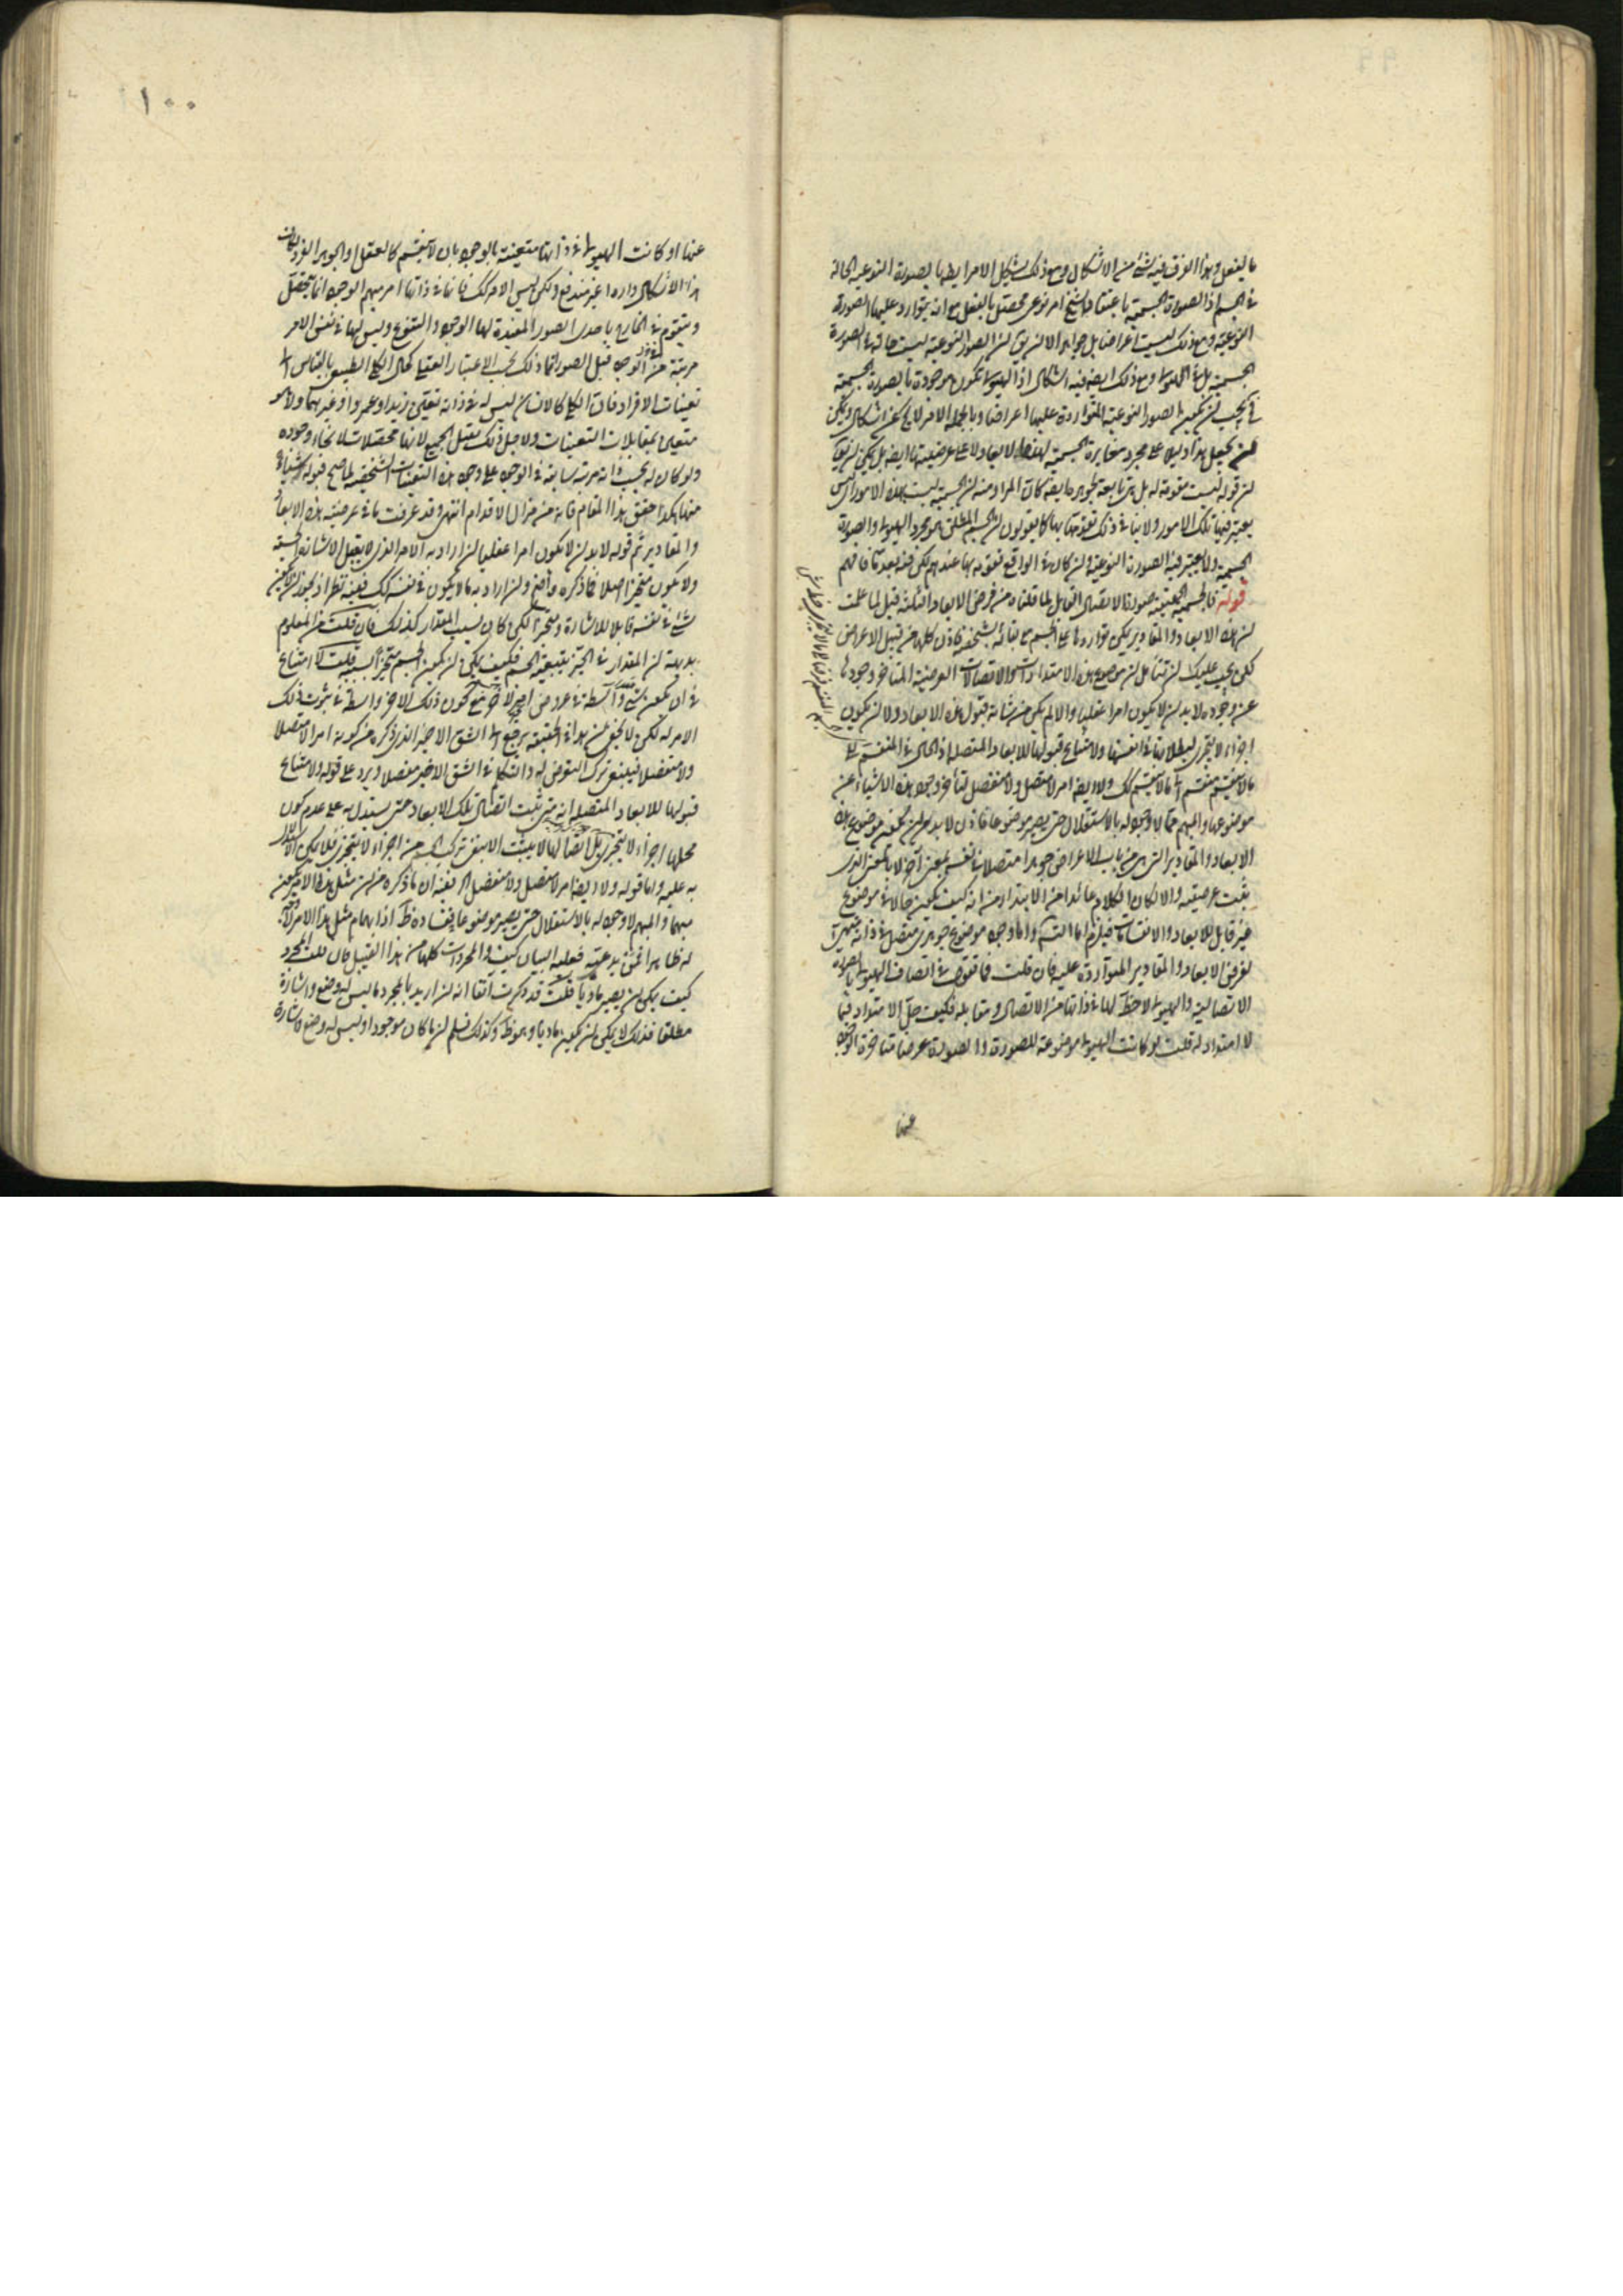 بالفعل وهذا الفرق فيه شئ من الاشكال ومع ذلك يشكل الامر ايضا بالصورة النوعية الحالة
في الجسم اذ الصورة الجسمية باعتقاد الشيخ امر نوعى محصل بالفعل مع انه يتوارد عليها الصورة
النوعية ومع ذلك ليست اعراضا بل جواهر الا ان يق ان الصور النوعية ليست حالة في الصورة
الجسمية بل في الهيولى ومع ذلك ايضا فيه اشكال اذ الهيولى تكون موجودة بالصورة الجسمية
فيجب ان يكون الصور النوعية المتواردة عليها اعراضا وبالجملة الامر لا يخ عن اشكال ويمكن
ان يجعل هذا دليلا على مجرد مغايرة الجسمية لهذه الابعاد لا على عرضيتها ايضا بل يمكن ان يق
ان قوله ليست مقومة له بل هي تابعة لجوهره ايضا كان المراد منه ان الجسمية ليست هذه الامور اذ ليس
يعتبر فيها تلك الامور ولا ينافي ذلك تقومها بها كما يقولون ان الجسم المطلق هو مجرد الهيولى والصورة
الجسمية ولا يعتبر فيه الصورة النوعية وان كان في الواقع تقومه بها عندهم لكن فيه بعد تا فافهم
قوله فالجسمية بالحقيقة صورة الاتصال القابل لما قلناه من فرض الابعاد الثلثة قيل لما علمت
ان هذه الابعاد والمقادير يمكن تواردها على الجسم مع بقائه بشخصه فاذن كلها من قبيل الاعراض
لكن يجب عليك ان تتأمل ان موضوع هذه الامتدادات والاتصالات العرضية المتاخر وجودها
عن وجوده لا بد ان لا يكون امرا عقليا والا لم يكن من شانه قبول هذه الابعاد ولا ان يكون
اجزاء لا يتجزى لبطلانها في انفسها ولامتناع قبولها للابعاد المتصلة اذ الحال في المنقسم
بما لا ينقسم منقسم بما لا ينقسم كك ولا ايضا امرا لا متصل ولا منفصل لتأخر وجود هذه الاشياء عن
موضوعها والمبهم مما لا وجود له بالاستقلال حتى يصير موضوعا فاذن لا بد من ان يكون موضوع هذه
الابعاد والمقادير التي من باب الاعراض جوهرا متصلا في نفسه بمعنى آخر لا بالمعنى الذى
يثبت عرضيته والا لكان الكلام عائدا من الابتداء من انه كيف يكون حالا في موضوع
غير قابل للابعاد والانقسامات فيلزم اما التسلسل واما وجود موضوع جوهرى متصل في ذاته
لفرض الابعاد والمقادير المتواردة عليه فان قلت فما تقول في اتصاف الهيولى بالصورة
الاتصالية والهيولى لاحظ لها في ذاتها من الاتصال ومقابله فكيف حل الامتداد فيما
لا امتداد له قلت لو كانت الهيولى موضوعة للصورة والصورة عرضا متاخرة الوجود
عنها
١٠٠
عنها او كانت الهيولى في ذاتها متعينة بالوجود بان لا ينقسم كالعقل والجوهر الفرد لكان
هذا الاشكال واردا غير مندفع ولكن ليس الامر كك فانها في ذاتها امر مبهم الوجود انما يتحصل
ويتقوم في الخارج باحدى الصور المفيدة لها الوجود والتنوع وليس لها في نفس الامر
مرتبة من الوجود قبل الصور انما ذلك بحسب الاعتبار العقلى كحال الكلى الطبيعى بالقياس الى
تعينات الافراد فان الكلى كالانسان ليس له في ذاته تعين زيد او عمرو او غيرهما ولا هو
متعين بمقابلات التعينات ولاجل ذلك يقبل الجميع لانها محصلات لانحاء وجوده
ولو كان له بحسب ذاته مرتبة سابقة في الوجود على وجود هذه التعينات الشخصية لما صح قبوله لشئ
منها هكذا حقق هذا المقام فانه من مزال الاقدام انتهى وقد عرفت ما في عرضية هذه الابعاد
والمقادير ثم قوله لا بد ان لا يكون امرا عقليا ان اراد به الامر الذى لا يقبل الاشارة الحسية
ولا يكون متحيزا اصلا فما ذكره واضح وان اراد به ما لا يكون في نفسه كك ففيه نظر اذ يجوز ان لا يكون
شئ في نفسه قابلا للاشارة ومتحيزا لكن كان بسبب المقدار كذلك فان قلت من المعلوم
بديهة ان المقدار في الحيز بتبعية الجسم فكيف يمكن ان يكون الجسم متحيزا بسببه قلت لا امتناع
في ان يكون شئ واسطة في عروض امر لآخر مع كون ذلك الآخر واسطة في ثبوت ذلك
الامر له لكن لا يخفى ان هذا في الحقيقة يرجع الى الشق الاخير الذى ذكره من كونه امرا لا متصلا
ولا منفصلا فينبغى ترك التعرض له والتكلم في الشق الاخير مفصلا ويرد على قوله ولامتناع
قبولها للابعاد المتصلة انه متى ثبت اتصال تلك الابعاد حتى يستدل به على عدم كون
محلها اجزاء لا يتجزى بل اتصالها لا يثبت الا بنفى تركب الجسم من اجزاء لا يتجزى فلا يمكن الاستدلال
به عليه واما قوله ولا ايضا امرا لا متصل ولا منفصل الخ ففيه ان ما ذكره من ان مثل هذا الامر يكون
مبهما والمبهم لا وجود له بالاستقلال حتى يصير موضوعا ففساده ظ اذ ابهام مثل هذا الامر لا
له ظاهرا فمن يدعيه فعليه البيان كيف والمجردات كلها من هذا القبيل فان قلت المجرد
كيف يمكن ان يصير ماديا قلت قد ذكرت آنفا انه ان اريد بالمجرد ما ليس له وضع واشارة
مطلقا فذلك لا يمكن ان يكون ماديا وهو ظ وكذلك نسلم ان ما كان موجودا وليس له وضع واشارة